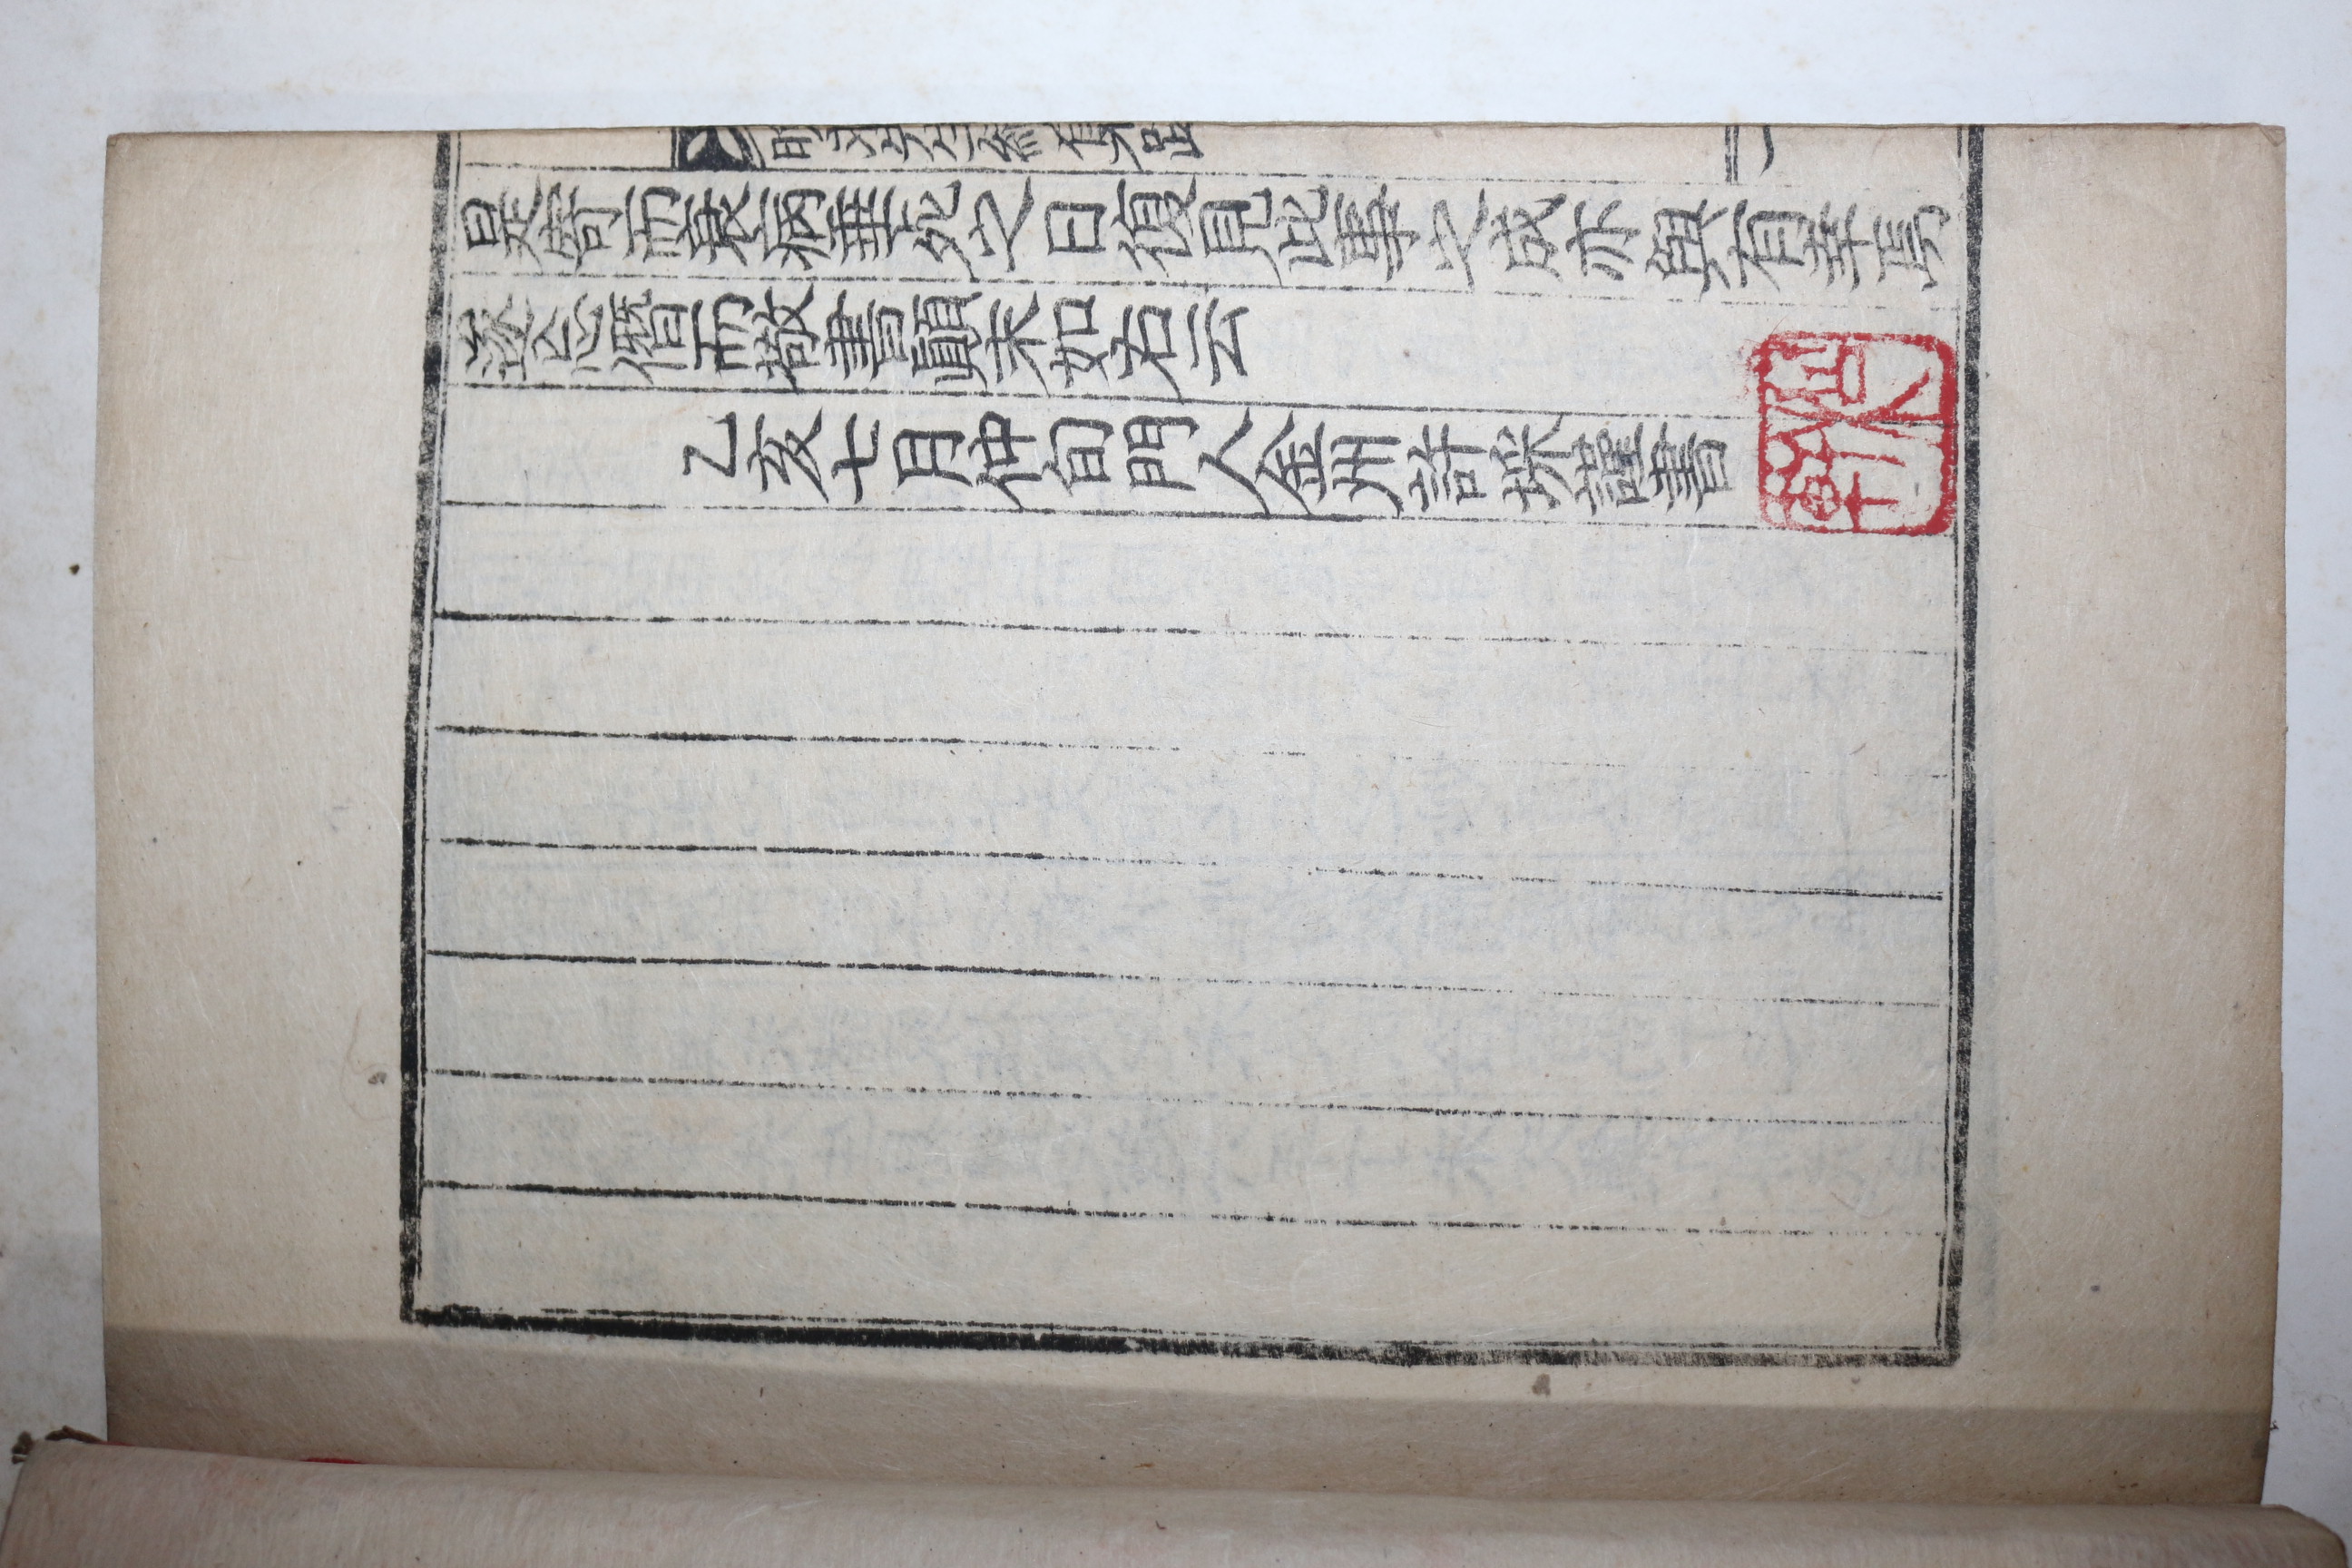 是寄而衰病垂死之日復見此事之成亦與有幸焉
遂忘僭而敬書顚末如右云
乙亥七月仲旬門人金州許埰謹書